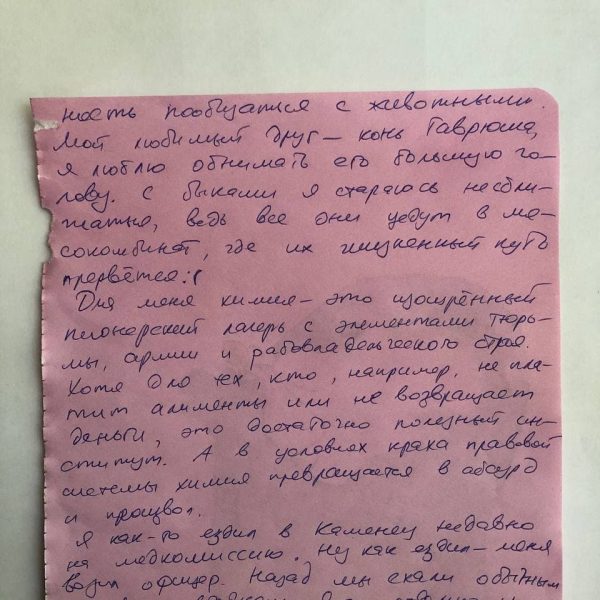 ность пообщаться с животными.
Мой любимый друг – конь Гаврюша,
я люблю обнимать его большую го-
лову. С быками я стараюсь не сбли-
жаться, ведь все они уедут в мя-
сокомбинат, где их жизненный путь
прервётся :(
Для меня химия – это изощрённый
пионерский лагерь с элементами тюрь-
мы, армии и рабовладельческого строя.
Хотя для тех, кто, например, не пла-
тит алименты или не возвращает
деньги, это достаточно полезный ин-
ститут. А в условиях краха правовой
системы химия превращается в абсурд
и произвол.
Я как-то ездил в Каменец недавно
на медкомиссию. Ну как ездил – меня
возил офицер. Назад мы ехали обычным